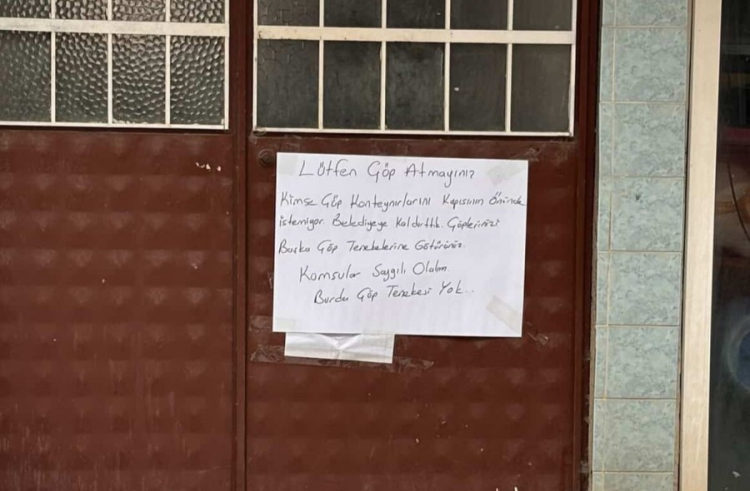 Lütfen Göp Atmayınız
Kimse Göp Konteynırlarını Kapısının Önünde
istemiyor Belediyeye Kaldırttık. Göplerinizi
Başka Göp Tenekelerine Götürünüz.
Komşular Saygılı Olalım.
Burda Göp Tenekesi Yok..